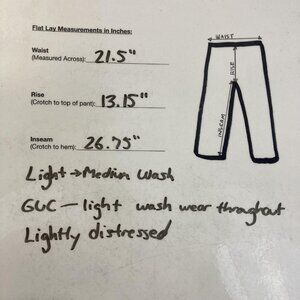 Flat Lay Measurements in Inches:
Waist
(Measured Across): 21.5"
Rise
(Crotch to top of pant): 13.15"
Inseam
(Crotch to hem): 26.75"
WAIST
RISE
INSEAM
Light → Medium Wash
GUC — light wash wear throughout
Lightly distressed